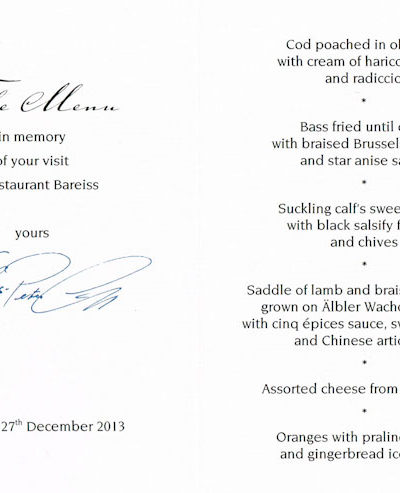 Menu
in memory
of your visit
staurant Bareiss
yours
27th December 2013
Cod poached in ol
with cream of harico
and radiccio
*
Bass fried until c
with braised Brussel
and star anise sa
*
Suckling calf's swee
with black salsify f
and chives
*
Saddle of lamb and brais
grown on Älbler Wacho
with cinq épices sauce, sw
and Chinese artic
*
Assorted cheese from
*
Oranges with praline
and gingerbread ice